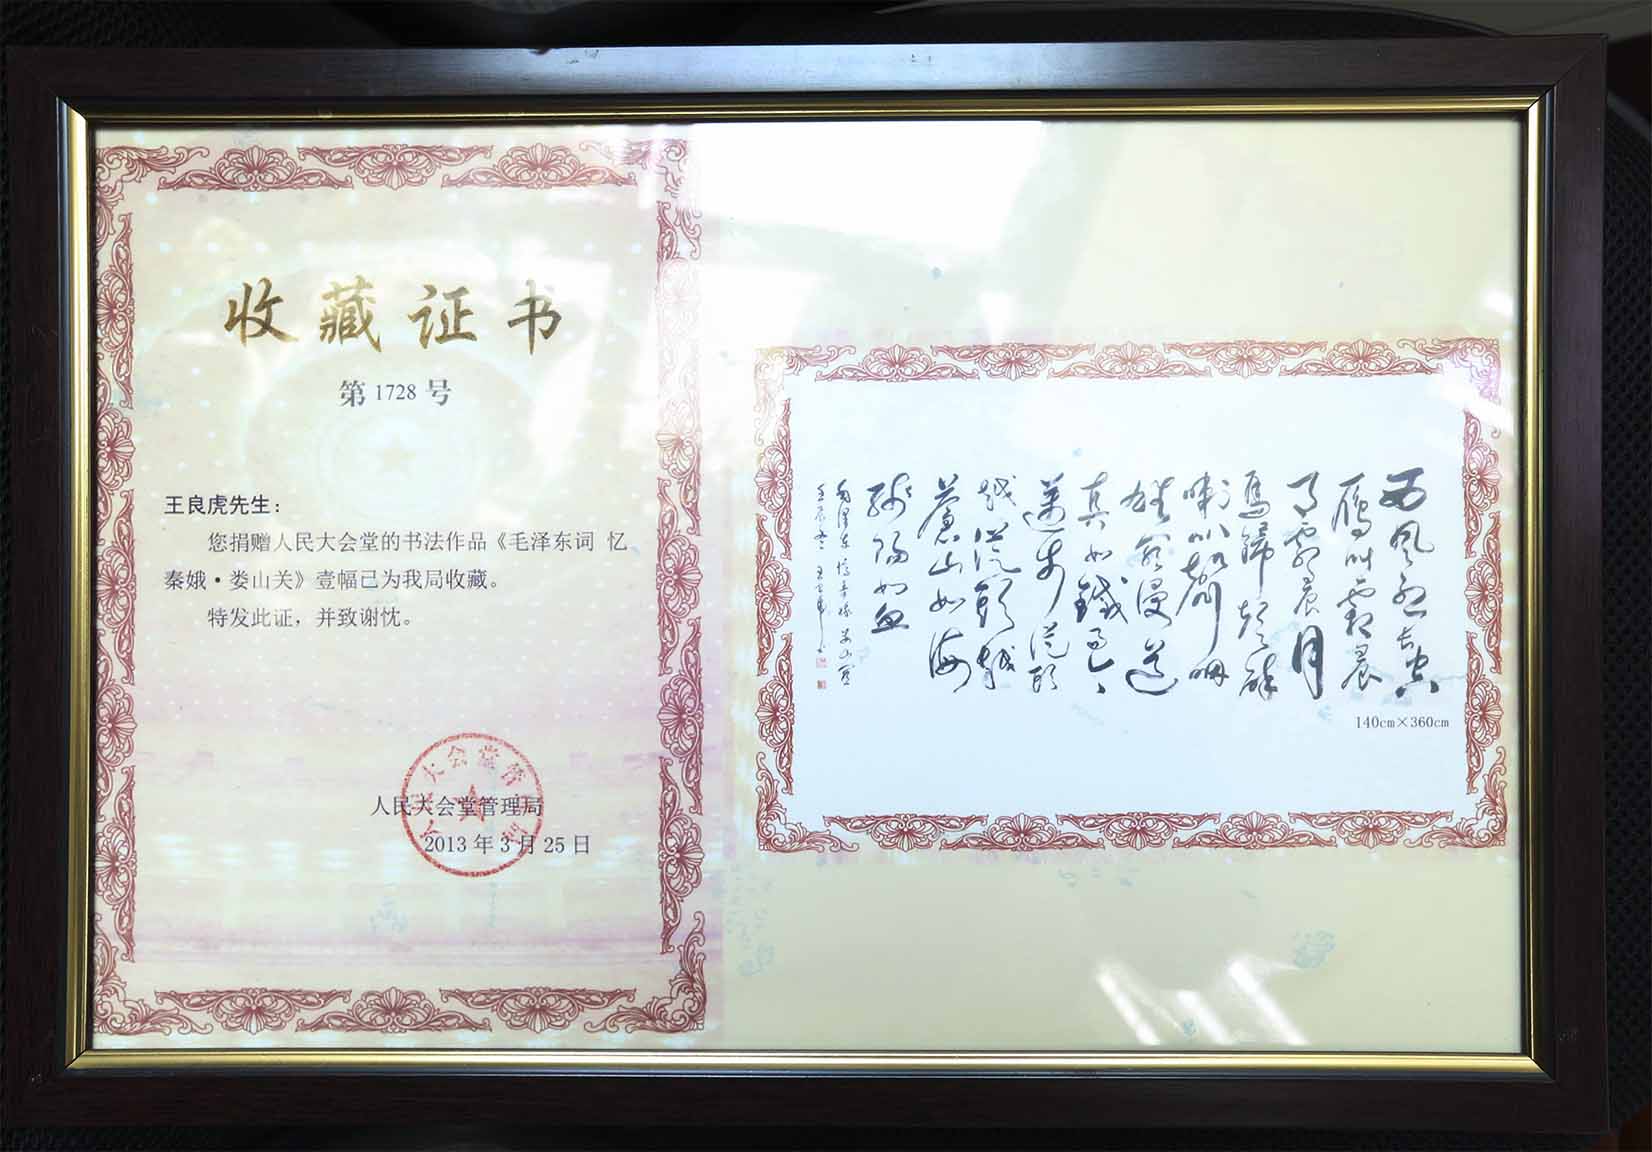 收藏证书
第 1728 号
王良虎先生：
您捐赠人民大会堂的书法作品《毛泽东词 忆
秦娥·娄山关》壹幅已为我局收藏。
特发此证，并致谢忱。
人民大会堂管理局
2013 年 3 月 25 日
大会堂管
西風烈长空
雁叫霜晨
月霜晨月
馬蹄声碎
喇叭声咽
雄关漫道
真如鐵而今
迈步从頭
越从頭越
蒼山如海
残陽如血
毛澤東憶秦娥娄山關
壬辰冬 王良虎
140cm×360cm